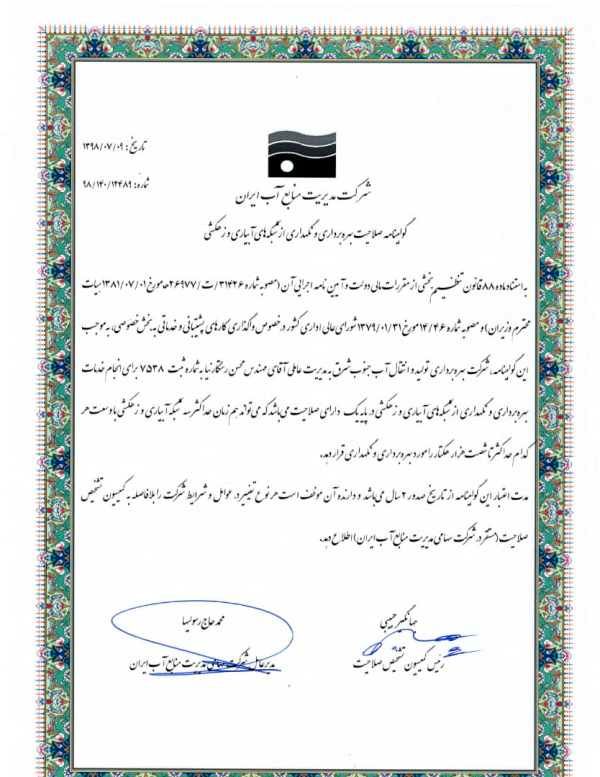 تاریخ: ۱۳۹۸/۰۷/۰۹
شماره: ۹۸/۱۴۰/۱۲۴۸۹
شرکت مدیریت منابع آب ایران
گواهینامه صلاحیت بهره برداری و نگهداری از شبکه های آبیاری و زهکشی
به استناد ماده ۸۸ قانون تنظیم بخشی از مقررات مالی دولت و آیین نامه اجرایی آن (مصوبه شماره ۳۱۴۲۶/ت/۲۶۹۷۷هـ مورخ ۱۳۸۱/۰۷/۰۱ هیات
محترم وزیران) و مصوبه شماره ۱۴/۴۶ مورخ ۱۳۷۹/۰۱/۳۱ شورای عالی اداری کشور در خصوص واگذاری کارهای پشتیبانی و خدماتی به بخش خصوصی، به موجب
این گواهینامه، شرکت بهره برداری تولید و انتقال آب جنوب شرق به مدیریت عاملی آقای مهندس محسن رستگارنیا به شماره ثبت ۷۵۳۸ برای انجام خدمات
بهره برداری و نگهداری از شبکه های آبیاری و زهکشی در پایه یک دارای صلاحیت می باشد که می تواند هم زمان حداکثر سه شبکه آبیاری و زهکشی با وسعت هر
کدام حداکثر تا شصت هزار هکتار را مورد بهره برداری و نگهداری قرار دهد.
مدت اعتبار این گواهینامه از تاریخ صدور ۲ سال می باشد و دارنده آن موظف است هر نوع تغییر در عوامل و شرایط شرکت را بلافاصله به کمیسیون تشخیص
صلاحیت (مستقر در شرکت سهامی مدیریت منابع آب ایران) اطلاع دهد.
جهانگیر حبیبی
رئیس کمیسیون تشخیص صلاحیت
محمد حاج رسولیها
مدیرعامل شرکت سهامی مدیریت منابع آب ایران